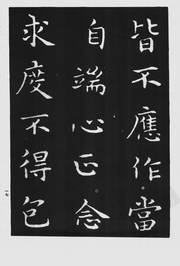 皆不應作當
自端心正念
求度不得包
一七